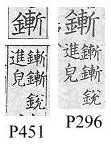 鏩
鏩鏩鋭
進皃
P451
鏩
鏩鏩鋭
進皃
P296